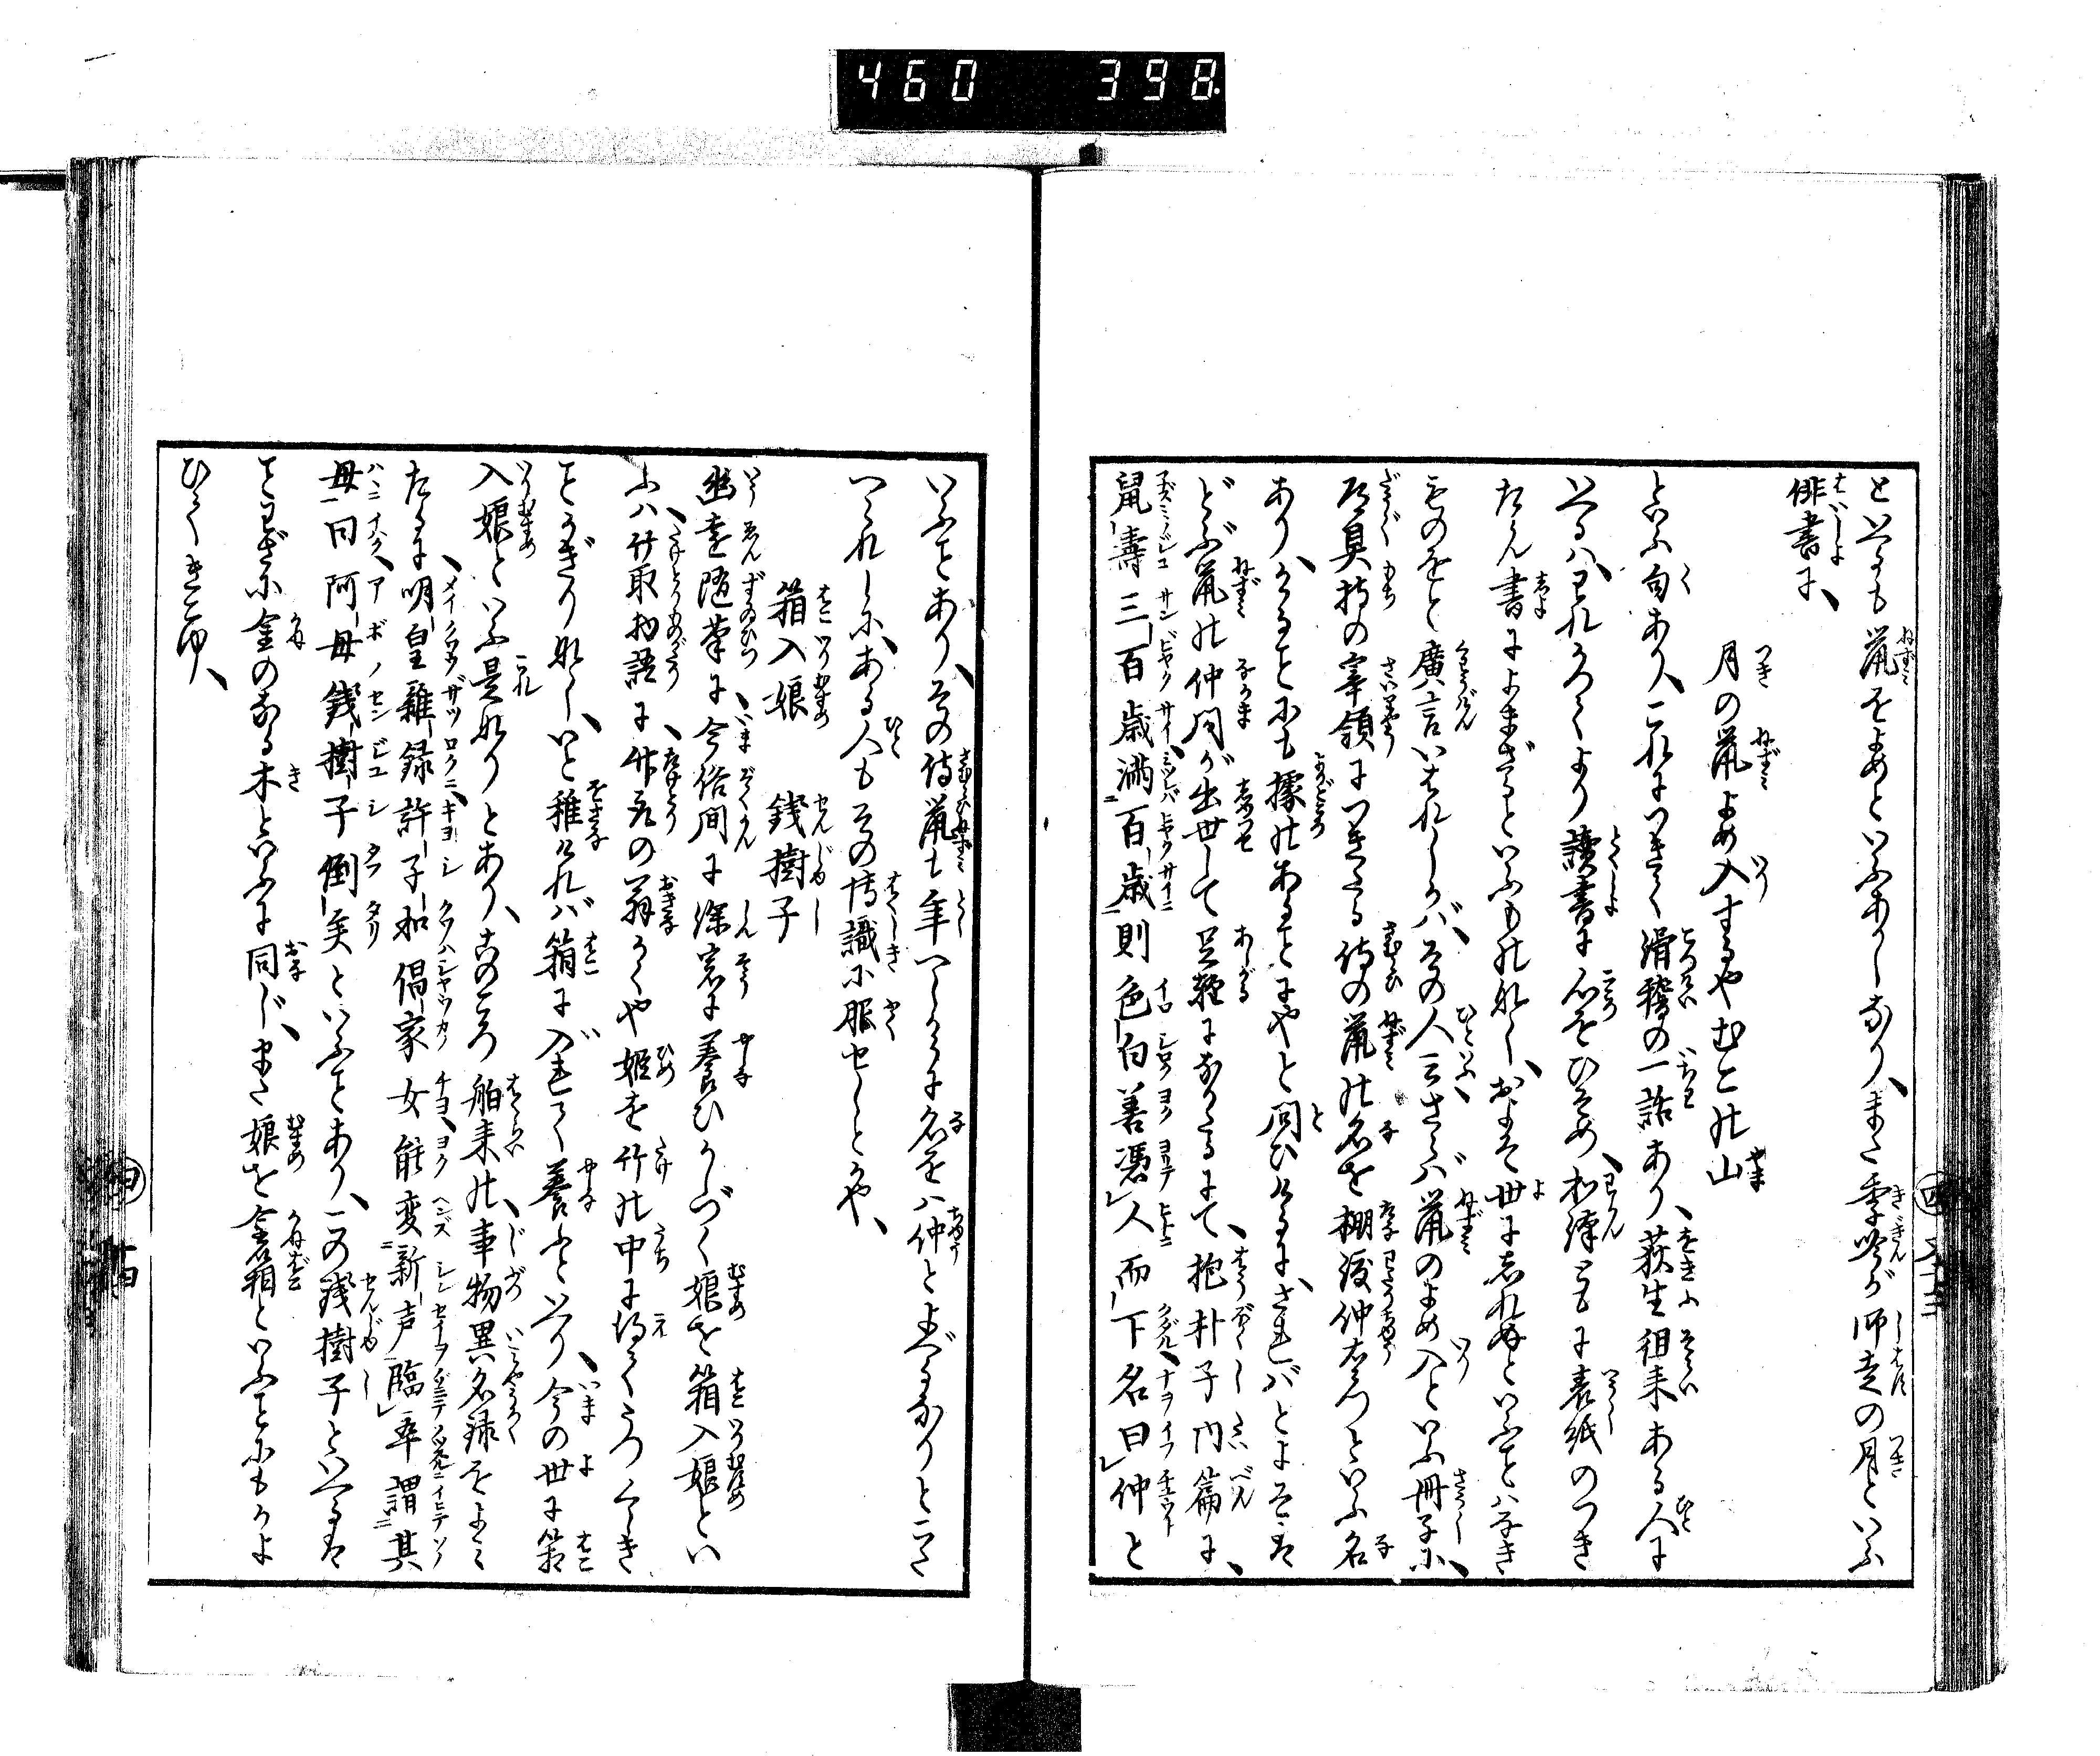 460 398
とよるも鼠をよめといふあかしなり、また季吟が師走の月といふ
俳書に、
月の鼠よめ入するやむこの山
といふ句あり、これにつきて滑稽の一話あり、荻生徂来ある人に
いへるハ、われわかくより讀書に心をひそめ、和漢ともに表紙のつき
たる書によまざるといふものなし、およそ世にしれぬといふことハなき
ものをと廣言いはれしかバ、その人云さらバ鼠のよめ入といふ冊子に、
道具持の宰領につきたる侍の鼠の名を棚渡仲右衛門といふ名
あり、かゝることにも據のあることにやと問ひけるに、されバとよそは
どぶ鼠の仲間が出世して足軽になりたるにて、抱朴子内篇に、
鼠壽三百歳満百歳則色白善憑人而下名曰仲と
いふことあり、その侍鼠も年へしからに名をハ仲とよべるなりとこた
へられしに、ある人もその博識に服せしとかや、
箱入娘　銭樹子
幽遠随筆に、今俗間に深窓に養ひかしづく娘を箱入娘とい
ふハ、竹取物語に、竹取の翁かくや姫を竹の中に得てうつくしき
ことかぎりなし、いと稚けれバ箱に入れて養ふといへり、今の世に箱
入娘といふ是なりとあり、このころ舶来の、事物異名録をよミ
たるに、明皇雑録許子和倡家女能変新声臨卒謂其
母曰阿母銭樹子倒矣といふことあり、この銭樹子といへるは
ことわざに金のなる木といふに同じ、また娘を金箱といふことにもかよ
ひてきこゆ、